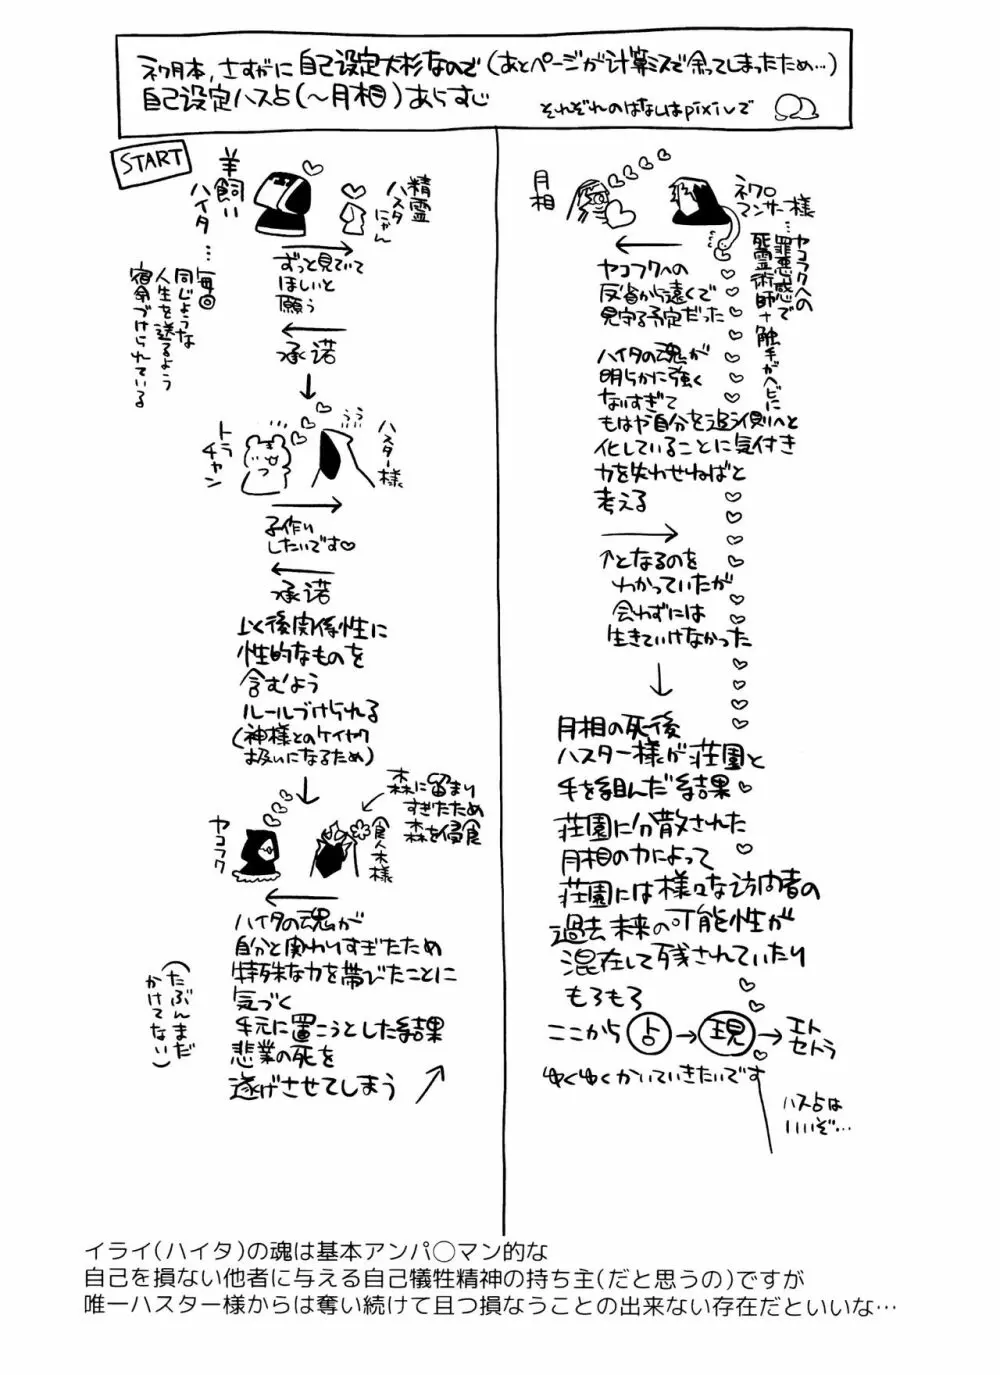 ネク月本,さすがに自己設定大杉なので(あとページが計算ミスで余ってしまったため…)
自己設定ハス占(～月相)あらすじ
それぞれのはなしはpixivで
START
羊飼い
ハイタ…
毎回
同じような
人生を送るよう
宿命づけられている
精霊
ハスタ
にゃん
ずっと見ていて
ほしいと
願う
承諾
トラ
チャン
ううう
ハスター様
子作り
したいです♡
承諾
以後関係性に
性的なものを
含むよう
ルールづけられる
(神様とのケイヤク
扱いになるため)
ヤコフク
食人木様
森に留まり
すぎたため
森を侵食
ハイタの魂が
自分と関わりすぎたため
特殊な力を帯びたことに
気づく
手元に置こうとした結果
悲業の死を
遂げさせてしまう
(たぶんまだ
かけてない)
月相
ネクロ
マンサー様
…ヤコフクへの
罪悪感で
死霊術師+触手がヘビに
ヤコフクへの
反省から遠くで
見守る予定だった
ハイタの魂が
明らかに強く
なりすぎて
もはや自分を追う側へと
化していることに気付き
力を失わせねばと
考える
↑となるのを
わかっていたが
会わずには
生きていけなかった
月相の死後
ハスター様が荘園と
手を組んだ結果
荘園に分散された
月相の力によって
荘園には様々な訪問者の
過去未来の可能性が
混在して残されていたり
もろもろ
ここから占→現→エト
セトラ
ゆくゆくかいていきたいです
ハス占は
いいぞ…
イライ(ハイタ)の魂は基本アンパ◯マン的な
自己を損ない他者に与える自己犠牲精神の持ち主(だと思うの)ですが
唯一ハスター様からは奪い続けて且つ損なうことの出来ない存在だといいな…